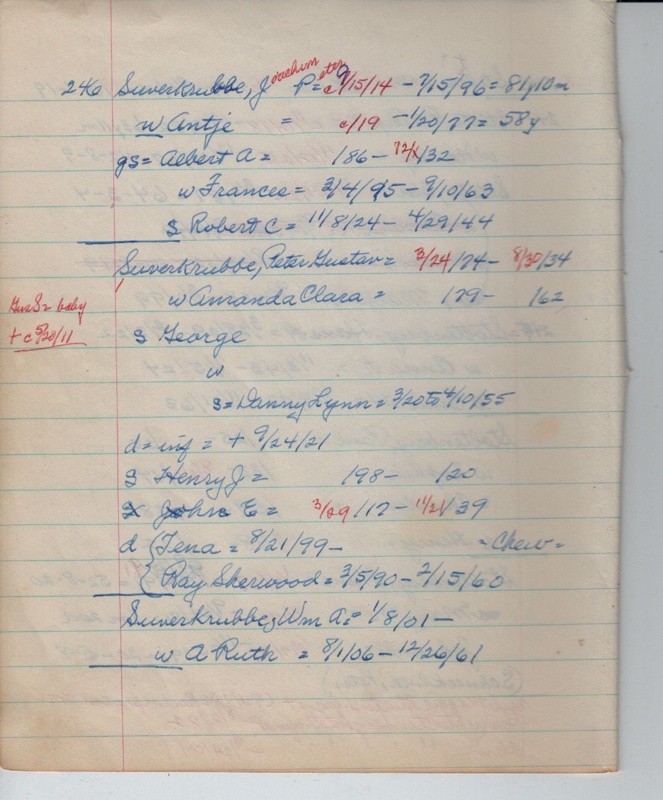 246 Suverkrubbe, Joachim Peter = c 9/15/14 - 7/15/96 = 81y10m
w Antje = c/19 - 1/20/77 = 58y
gs = Albert A = 186 - 12/1/32
w Frances = 3/4/95 - 9/10/63
s Robert C = 11/8/24 - 4/29/44
Suverkrubbe, Peter Gustav = 3/24/74 - 8/30/34
w Amanda Clara = 179 - 162
Gus S = baby
+ c 5/20/11
s George
w
s = Danny Lynn = 3/20 to 4/10/55
d = inf = + 9/24/21
s Henry J = 198 - 120
s John E = 3/29/17 - 11/21/39
d { Tena = 8/21/99 - - Chew =
{ Ray Sherwood = 3/5/90 - 2/15/60
Suverkrubbe, Wm A = 1/8/01 -
w A Ruth = 8/1/06 - 12/26/61